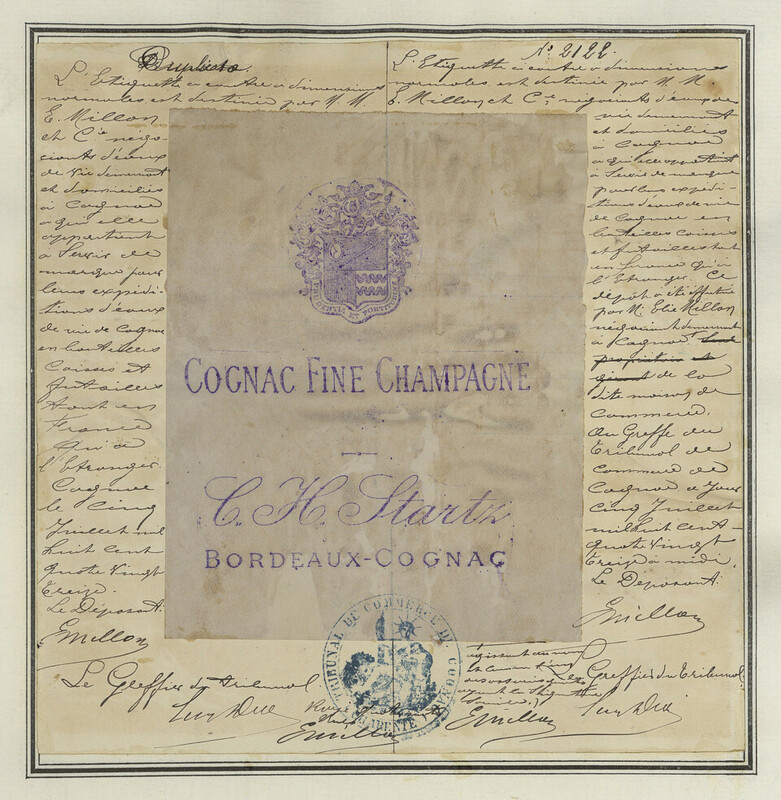 Duplicata.
L'Etiquette ci contre a dimensions
normales est destinée par M. M.
E. Millon
et Cie négo-
ciants d'eaux
de vie demeurant
et domiciliés
à Cognac
à qui elle
appartient
à servir de
marque pour
leurs expédi-
tions d'eaux
de vie de Cognac
en bouteilles
caisses et
futailles
tant en
France
qu'à
l'Etranger.
Cognac
le cinq
Juillet mil
huit cent
quatre vingt
treize.
Le Déposant.
EMillon
Le Greffier du Tribunal
No. 2122.
L'Etiquette ci contre a dimensions
normales est destinée par M. M.
E. Millon et Cie négociants d'eaux de
vie demeurant
et domiciliés
à Cognac
à qui elle appartient
à servir de marque
pour leurs expédi-
tions d'eaux de vie
de Cognac en
bouteilles caisses
et futailles tant
en France qu'à
l'Etranger. Ce
dépôt a été effectué
par Mr. Elie Millon
négociant demeurant
à Cognac
de la
dite maison de
commerce.
Au Greffe du
Tribunal de
commerce de
Cognac ce jour
cinq Juillet
mil huit cent
quatre vingt
treize à midi.
Le Déposant.
EMillon
Greffier du Tribunal
EMillon
EMillon
PRUDENTIA ET FORTITUDINE
COGNAC FINE CHAMPAGNE
C. H. Startz
BORDEAUX-COGNAC
TRIBUNAL DE COMMERCE DE COGNAC
CHARENTE